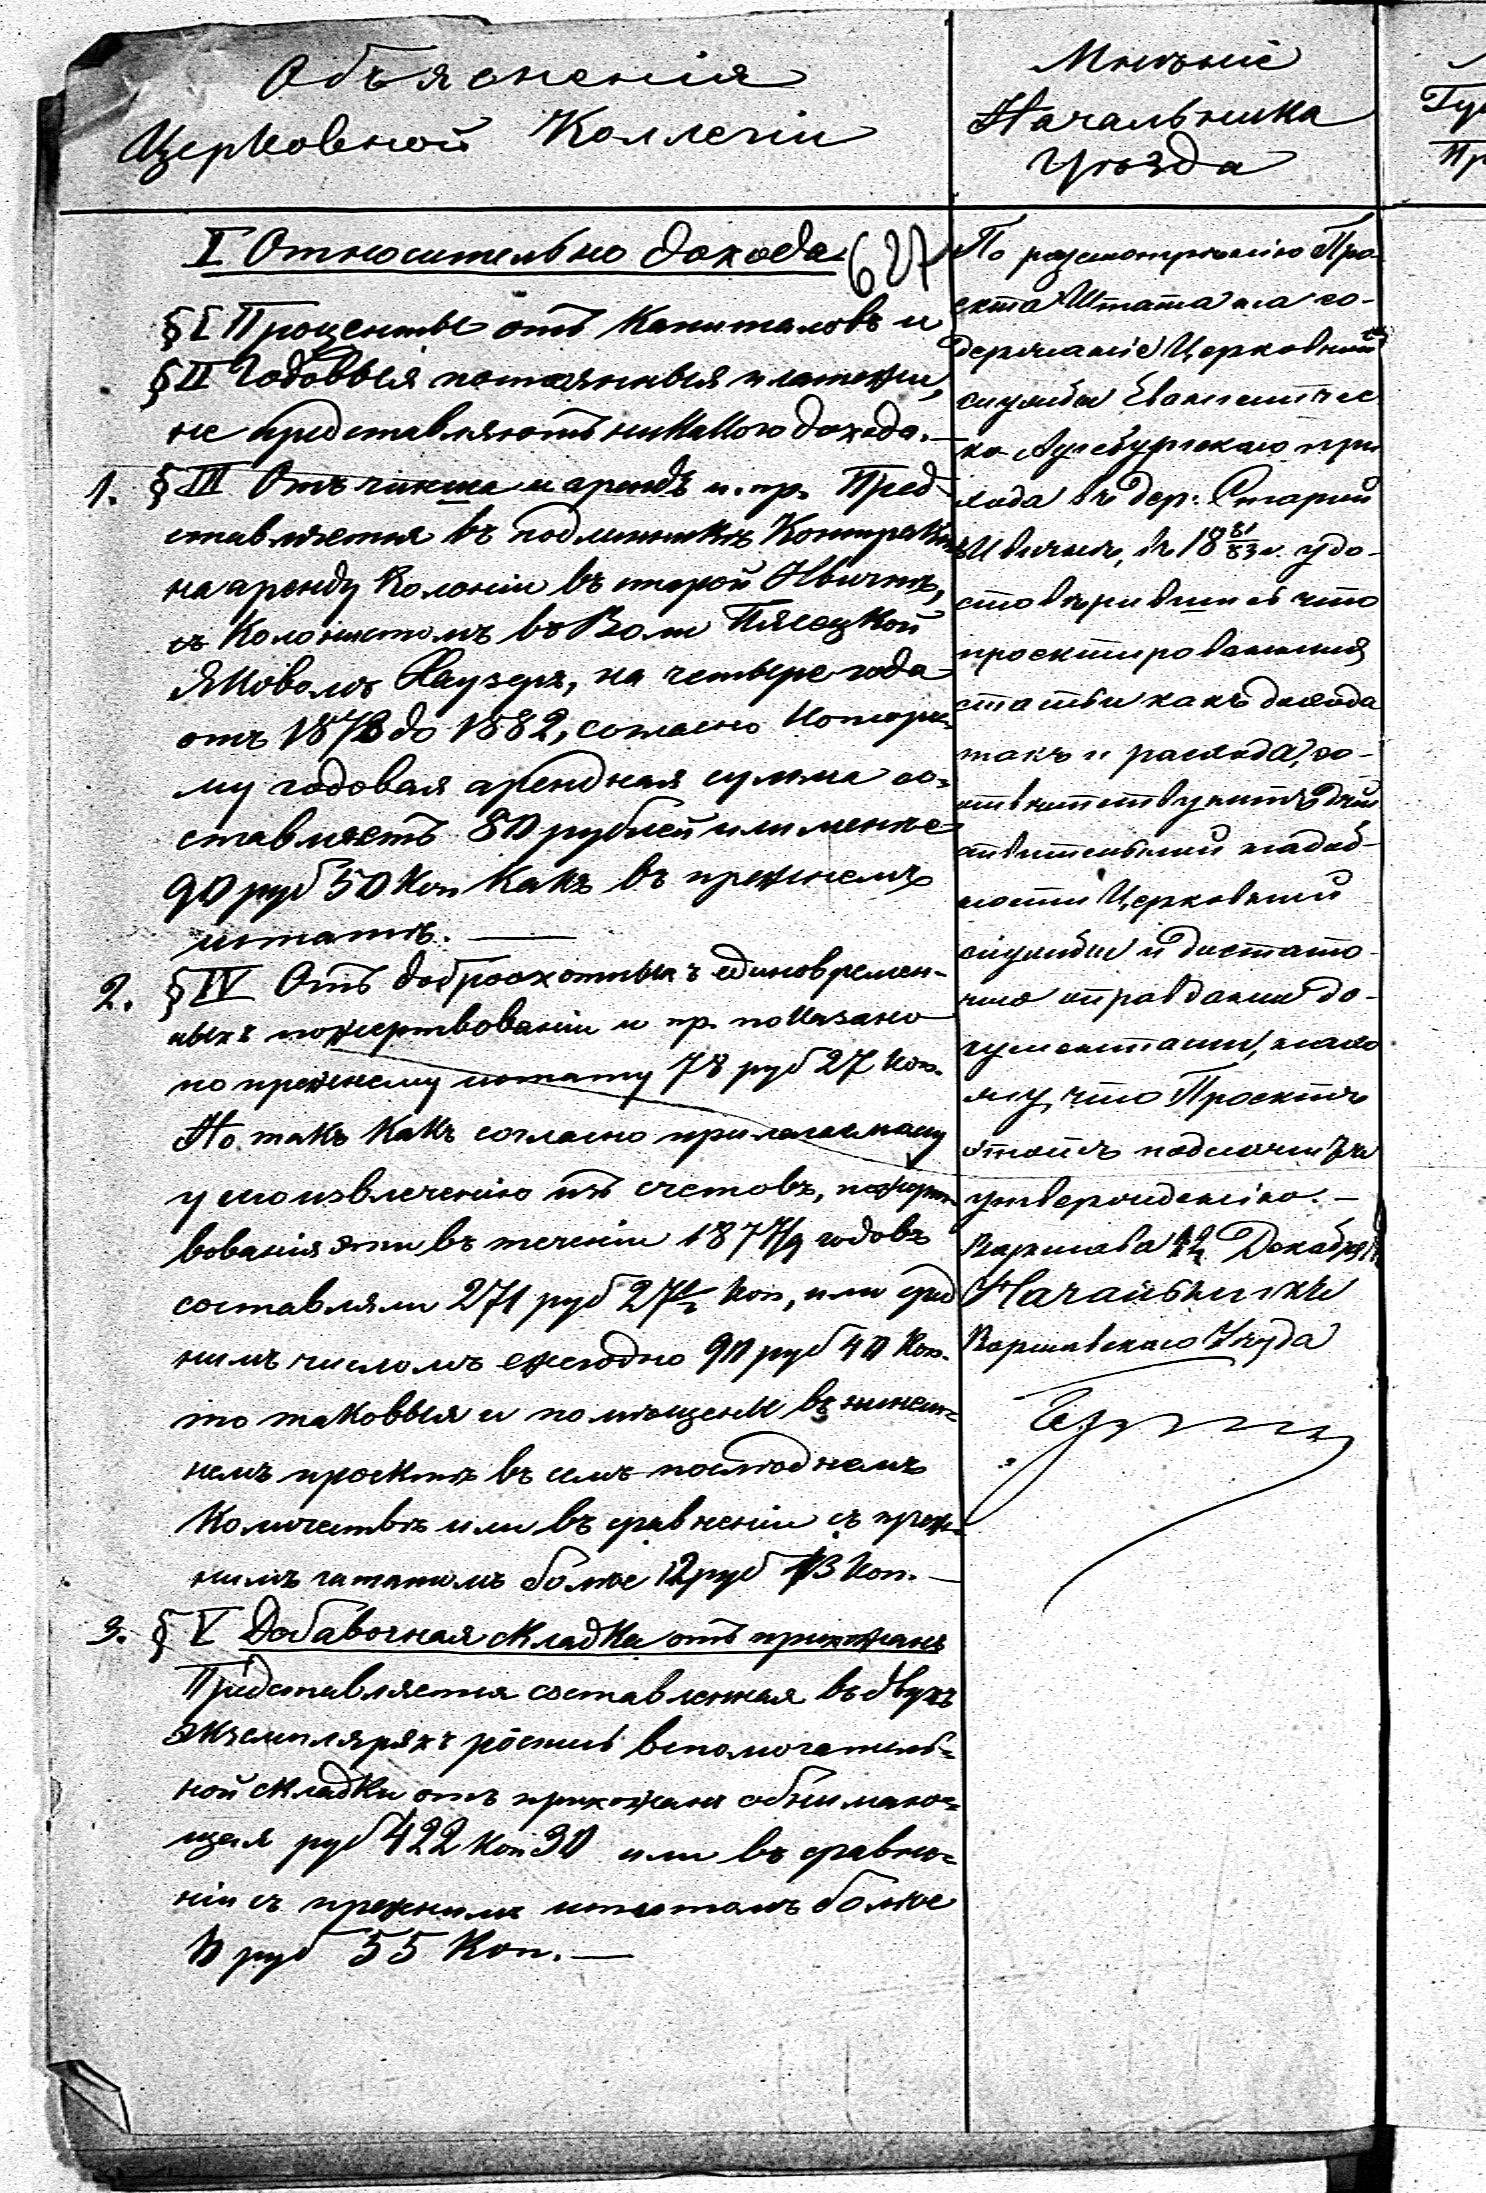 Объясненія
Церковной Коллегіи
I Относительно дохода
627
§ I Проценты отъ Капиталовъ и
§ II Годовыя постоянныя платежи,
не представляютъ никакого дохода.—
1. § III Отъ чинша и арендъ и. пр. Пред-
ставляется въ подлинникѣ Контрактъ
на аренду Колоніи въ старой Ивичнѣ,
съ Колонистомъ въ Воли Пясецкой
Яковомъ Гаузеръ, на четыре года
отъ 1878 до 1882, согласно Которо-
му годовая арендная сумма со-
ставляетъ 80 рублей или менѣе
90 руб 50 Коп Какъ въ прежнемъ
штатѣ. —
2. § IV Отъ доброохотныхъ единовремен-
ныхъ пожертвованіи и пр. показано
по прежнему штату 78 руб 27 Коп.
Но такъ Какъ согласно прилагаемому
у сего извлеченію изъ счетовъ, пожерт-
вованія эти въ теченіи 1877/9 годовъ
составляли 271 руб 27½ Коп, или сред
нимъ числомъ ежегодно 90 руб 40 Коп.
то таковыя и помѣщены въ нинеш-
немъ проектѣ въ семъ послѣднемъ
Количествѣ или въ сравненіи съ преж-
нимъ штатомъ болѣе 12 руб 13 Коп.—
3. § V Добавочная складка отъ прихожанъ
Представляется составленная въ двухъ
экземплярахъ роспись вспомогатель-
ной складки отъ прихожанъ обнимаю-
щая руб 422 Коп 30 или въ сравне-
ніи съ прежнимъ штатомъ болѣе
руб 55 Коп.—
Мнѣніе
Начальника
Уѣзда
По разсмотрѣнію Про-
екта Штата на со-
держаніе Церковной
службы Евангеличес
ко Аугсбургскаго при
хода въ дер: Старой
Ивичнѣ, въ 18 81/83 г. удо-
стовѣрившись что
проектированныя
статьи какъ дохода
такъ и расхода, со-
отвѣтствуютъ дѣй
ствительной надоб-
ности Церковной
службы и достато-
чно оправданы до-
кументами, нахо
жу, что Проектъ
этотъ подлежитъ
утвержденію.—
Варшава Декабря
Начальникъ
Варшавскаго Уѣзда
Гу
Пр